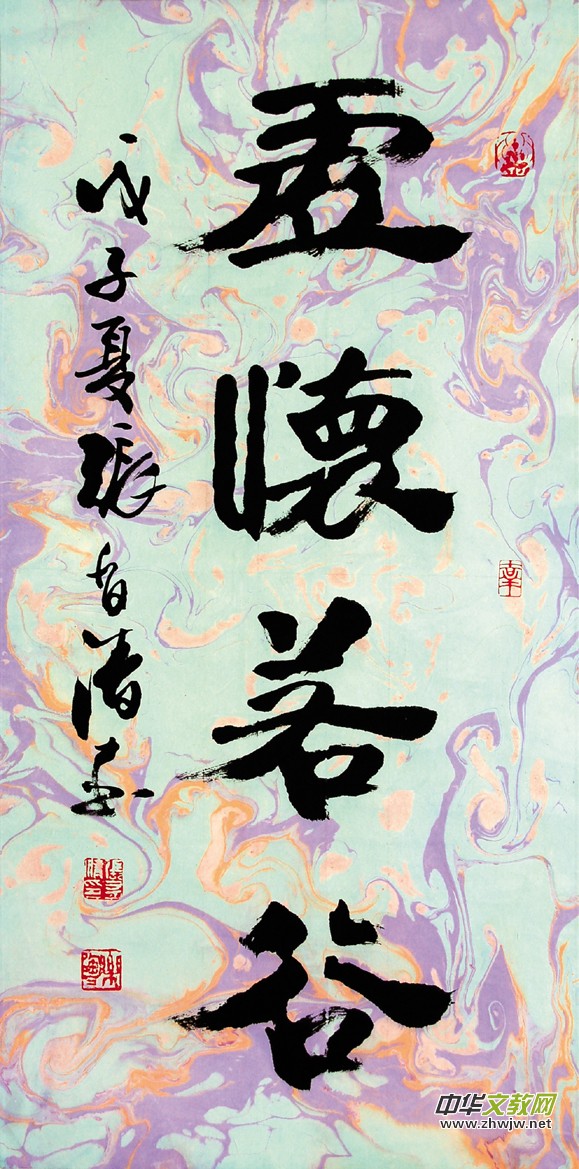 虚懷若谷
戊子夏張
中华文教网
www.zhwjw.net